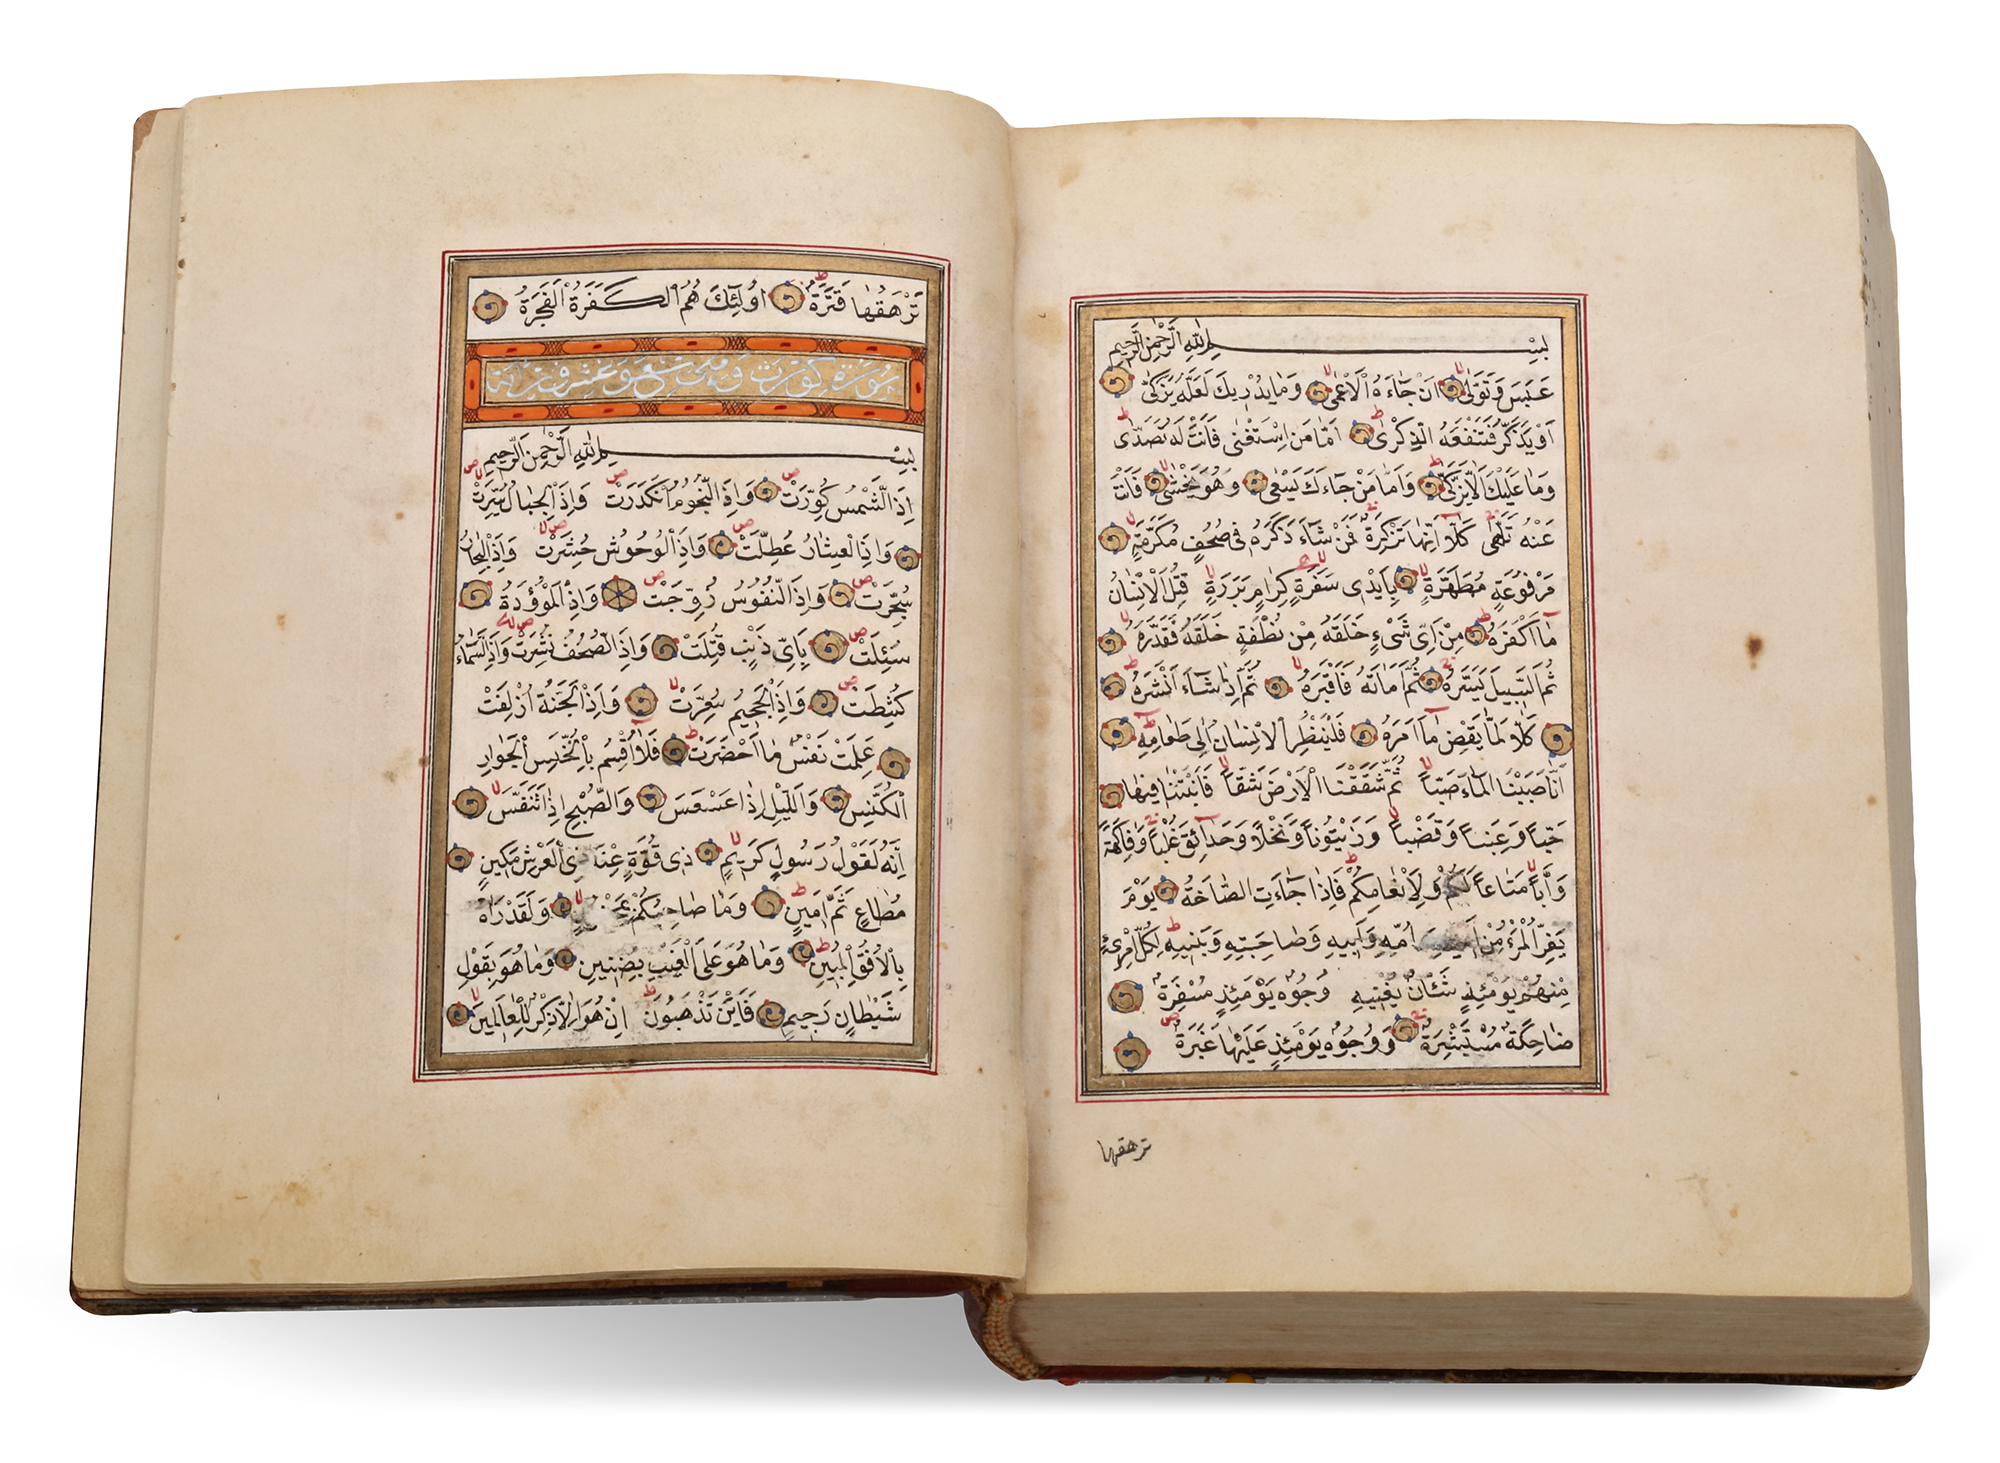 بسم الله الرحمن الرحيم
عَبَسَ وَتَوَلّٰى اَنْ جَاءَهُ الْاَعْمٰى وَمَا يُدْرِيكَ لَعَلَّهُ يَزَّكّٰى
اَوْ يَذَّكَّرُ فَتَنْفَعَهُ الذِّكْرٰى اَمَّا مَنِ اسْتَغْنٰى فَاَنْتَ لَهُ تَصَدّٰى
وَمَا عَلَيْكَ اَلَّا يَزَّكّٰى وَاَمَّا مَنْ جَاءَكَ يَسْعٰى وَهُوَ يَخْشٰى فَاَنْتَ
عَنْهُ تَلَهّٰى كَلَّا اِنَّهَا تَذْكِرَةٌ فَمَنْ شَاءَ ذَكَرَهُ فِى صُحُفٍ مُكَرَّمَةٍ
مَرْفُوعَةٍ مُطَهَّرَةٍ بِاَيْدِى سَفَرَةٍ كِرَامٍ بَرَرَةٍ قُتِلَ الْاِنْسَانُ
مَا اَكْفَرَهُ مِنْ اَىِّ شَىْءٍ خَلَقَهُ مِنْ نُطْفَةٍ خَلَقَهُ فَقَدَّرَهُ
ثُمَّ السَّبِيلَ يَسَّرَهُ ثُمَّ اَمَاتَهُ فَاَقْبَرَهُ ثُمَّ اِذَا شَاءَ اَنْشَرَهُ
كَلَّا لَمَّا يَقْضِ مَا اَمَرَهُ فَلْيَنْظُرِ الْاِنْسَانُ اِلٰى طَعَامِهِ
اَنَّا صَبَبْنَا الْمَاءَ صَبًّا ثُمَّ شَقَقْنَا الْاَرْضَ شَقًّا فَاَنْبَتْنَا فِيهَا
حَبًّا وَعِنَبًا وَقَضْبًا وَزَيْتُونًا وَنَخْلًا وَحَدَائِقَ غُلْبًا وَفَاكِهَةً
وَاَبًّا مَتَاعًا لَكُمْ وَلِاَنْعَامِكُمْ فَاِذَا جَاءَتِ الصَّاخَّةُ يَوْمَ
يَفِرُّ الْمَرْءُ مِنْ اَخِيهِ وَاُمِّهِ وَاَبِيهِ وَصَاحِبَتِهِ وَبَنِيهِ لِكُلِّ امْرِئٍ
مِنْهُمْ يَوْمَئِذٍ شَأْنٌ يُغْنِيهِ وُجُوهٌ يَوْمَئِذٍ مُسْفِرَةٌ
ضَاحِكَةٌ مُسْتَبْشِرَةٌ وَوُجُوهٌ يَوْمَئِذٍ عَلَيْهَا غَبَرَةٌ
ترهقها
تَرْهَقُهَا قَتَرَةٌ اُولٰئِكَ هُمُ الْكَفَرَةُ الْفَجَرَةُ
سورة كورت وهى تسع وعشرون اية
بسم الله الرحمن الرحيم
اِذَا الشَّمْسُ كُوِّرَتْ وَاِذَا النُّجُومُ انْكَدَرَتْ وَاِذَا الْجِبَالُ سُيِّرَتْ
وَاِذَا الْعِشَارُ عُطِّلَتْ وَاِذَا الْوُحُوشُ حُشِرَتْ وَاِذَا الْبِحَارُ
سُجِّرَتْ وَاِذَا النُّفُوسُ زُوِّجَتْ وَاِذَا الْمَوْؤُدَةُ
سُئِلَتْ بِاَىِّ ذَنْبٍ قُتِلَتْ وَاِذَا الصُّحُفُ نُشِرَتْ وَاِذَا السَّمَاءُ
كُشِطَتْ وَاِذَا الْجَحِيمُ سُعِّرَتْ وَاِذَا الْجَنَّةُ اُزْلِفَتْ
عَلِمَتْ نَفْسٌ مَا اَحْضَرَتْ فَلَا اُقْسِمُ بِالْخُنَّسِ الْجَوَارِ
الْكُنَّسِ وَاللَّيْلِ اِذَا عَسْعَسَ وَالصُّبْحِ اِذَا تَنَفَّسَ
اِنَّهُ لَقَوْلُ رَسُولٍ كَرِيمٍ ذِى قُوَّةٍ عِنْدَ ذِى الْعَرْشِ مَكِينٍ
مُطَاعٍ ثَمَّ اَمِينٍ وَمَا صَاحِبُكُمْ بِمَجْنُونٍ وَلَقَدْ رَاٰهُ
بِالْاُفُقِ الْمُبِينِ وَمَا هُوَ عَلَى الْغَيْبِ بِضَنِينٍ وَمَا هُوَ بِقَوْلِ
شَيْطَانٍ رَجِيمٍ فَاَيْنَ تَذْهَبُونَ اِنْ هُوَ اِلَّا ذِكْرٌ لِلْعَالَمِينَ